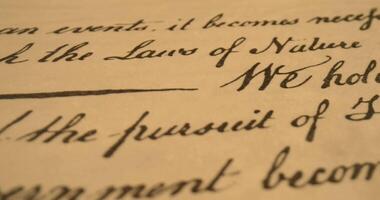 an events, it becomes necess
h the Laws of Nature
We hol
d the pursuit of
ernment becom